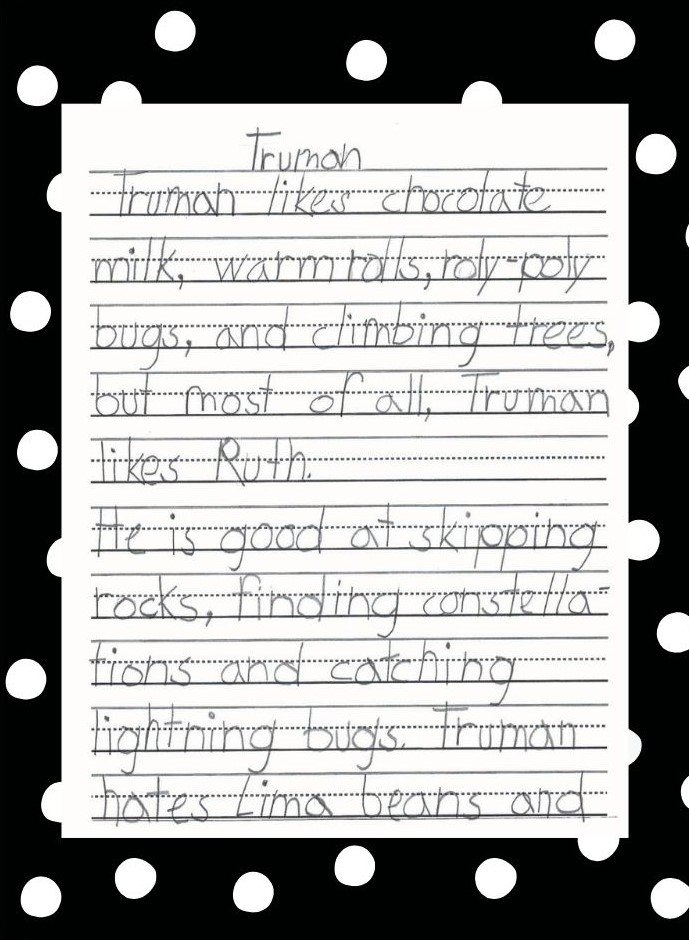 Truman
Truman likes chocolate
milk, warm rolls, roly-poly
bugs, and climbing trees,
but most of all, Truman
likes Ruth.
He is good at skipping
rocks, finding constella-
tions and catching
lightning bugs. Truman
hates Lima beans and